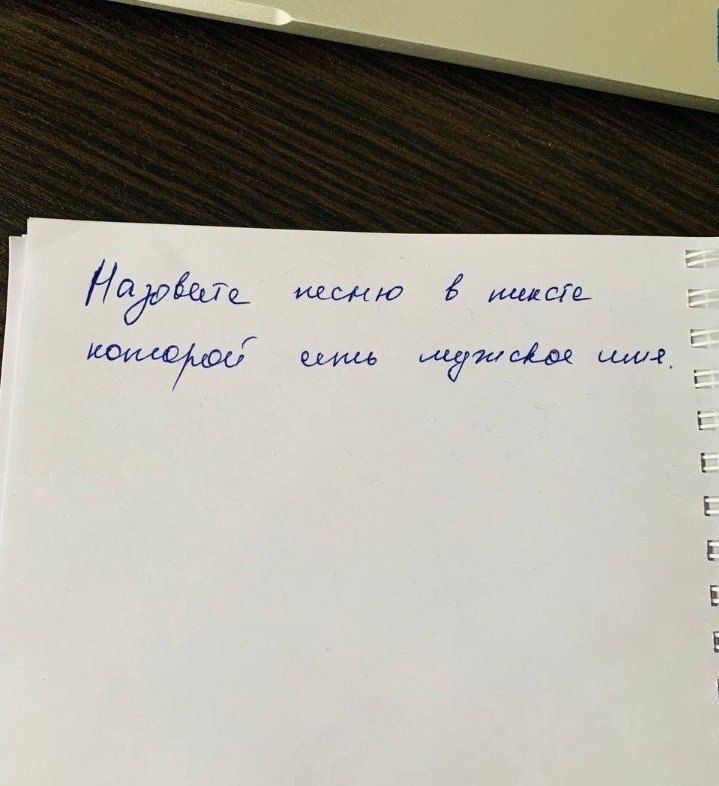 Назовите песню в тексте
которой есть мужское имя.